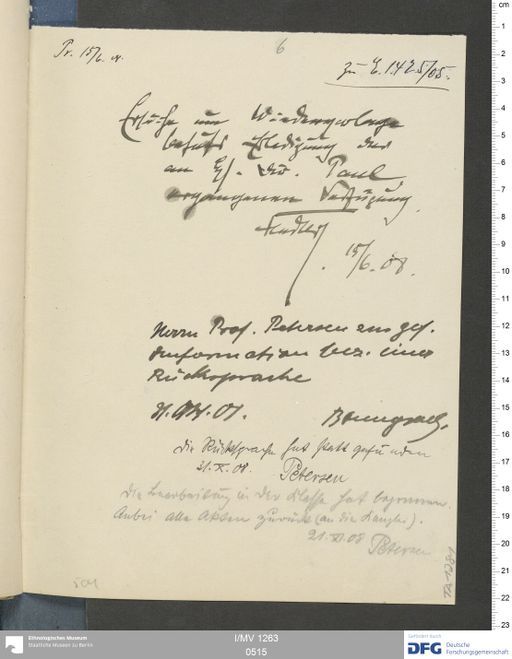 Pr. 15/6. 08.
6
zu E. 1425/05.
Ersuche um Wiedervorlage
behufs Erledigung der
an Hrn. Dr. Paul
ergangenen Verfügung
15/6. 08.
Herrn Prof. Petersen zur gef.
Information bez. einer
Rücksprache
Die Rücksprache hat statt gefunden
21. XI. 08. Petersen
Die Bearbeitung in der Klasse hat begonnen.
Anbei alle Akten zurück (an die Kanzlei).
21. XI 08
Petersen
Ethnologisches Museum
Staatliche Museen zu Berlin
I/MV 1263
0515
Gefördert durch
DFG Deutsche
Forschungsgemeinschaft
cm
1
2
3
4
5
6
7
8
9
10
11
12
13
14
15
16
17
18
19
20
21
22
23